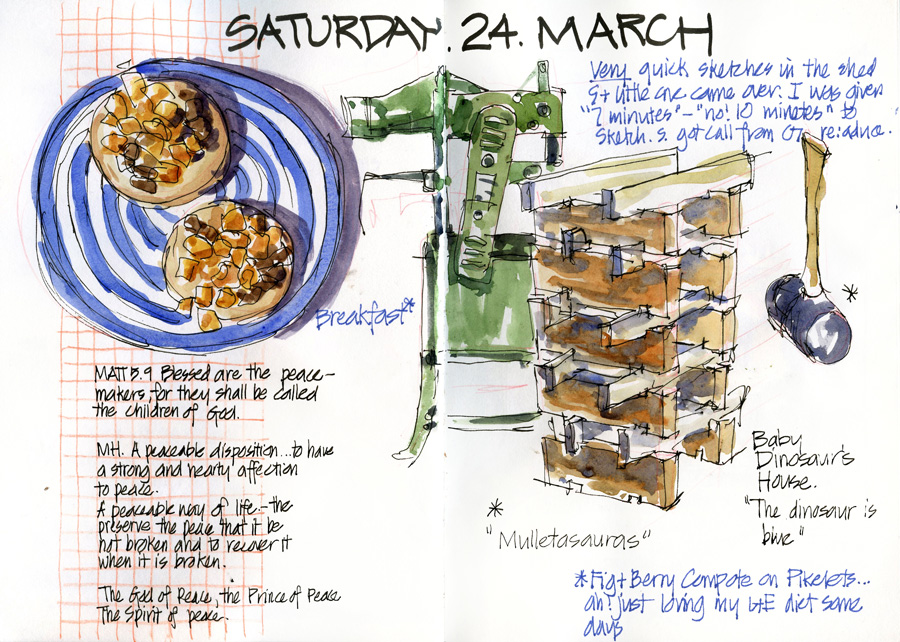 SATURDAY. 24. MARCH
Very quick sketches in the shed
little one came over. I was given
"2 minutes" - "no! 10 minutes" to
sketch. S. got call from re: aduce.
Breakfast*
*
MATT 5.9 Blessed are the peace-
makers, for they shall be called
the children of God.
MH. A peaceable disposition... to have
a strong and hearty affection
to peace.
A peaceable way of life - the
preserve the peace that it be
not broken and to recover it
when it is broken.
The God of Peace, the Prince of Peace
The Spirit of peace.
Baby
Dinosaur's
House.
"The dinosaur is
blue"
*
"Mulletasauras"
*Fig + Berry Compote on Pikelets...
ah! just loving my diet some
days